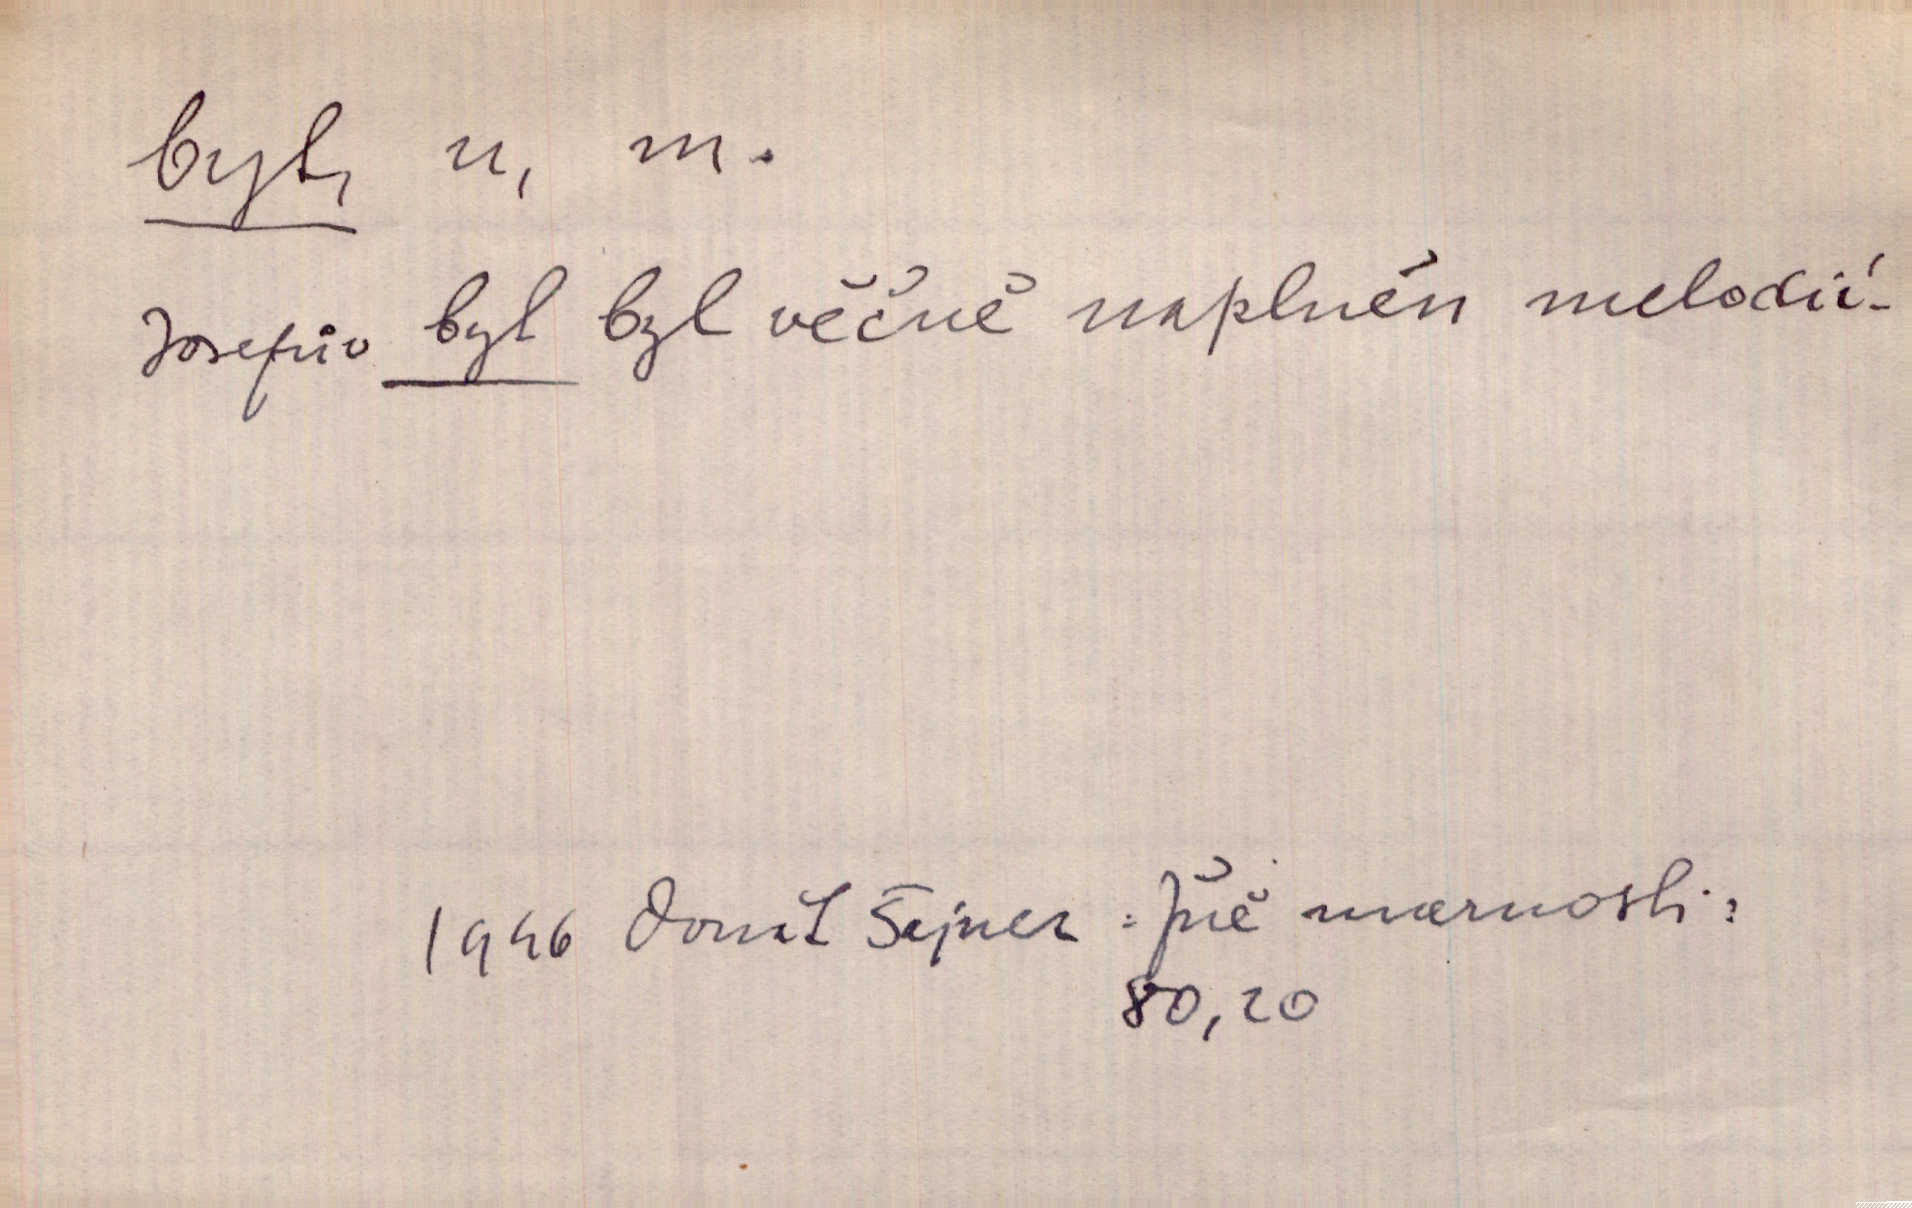 byt, u, m.
Josefův byt byl věčně naplněn melodií.
1946 Donát Šajner: Žně marnosti:
80,20